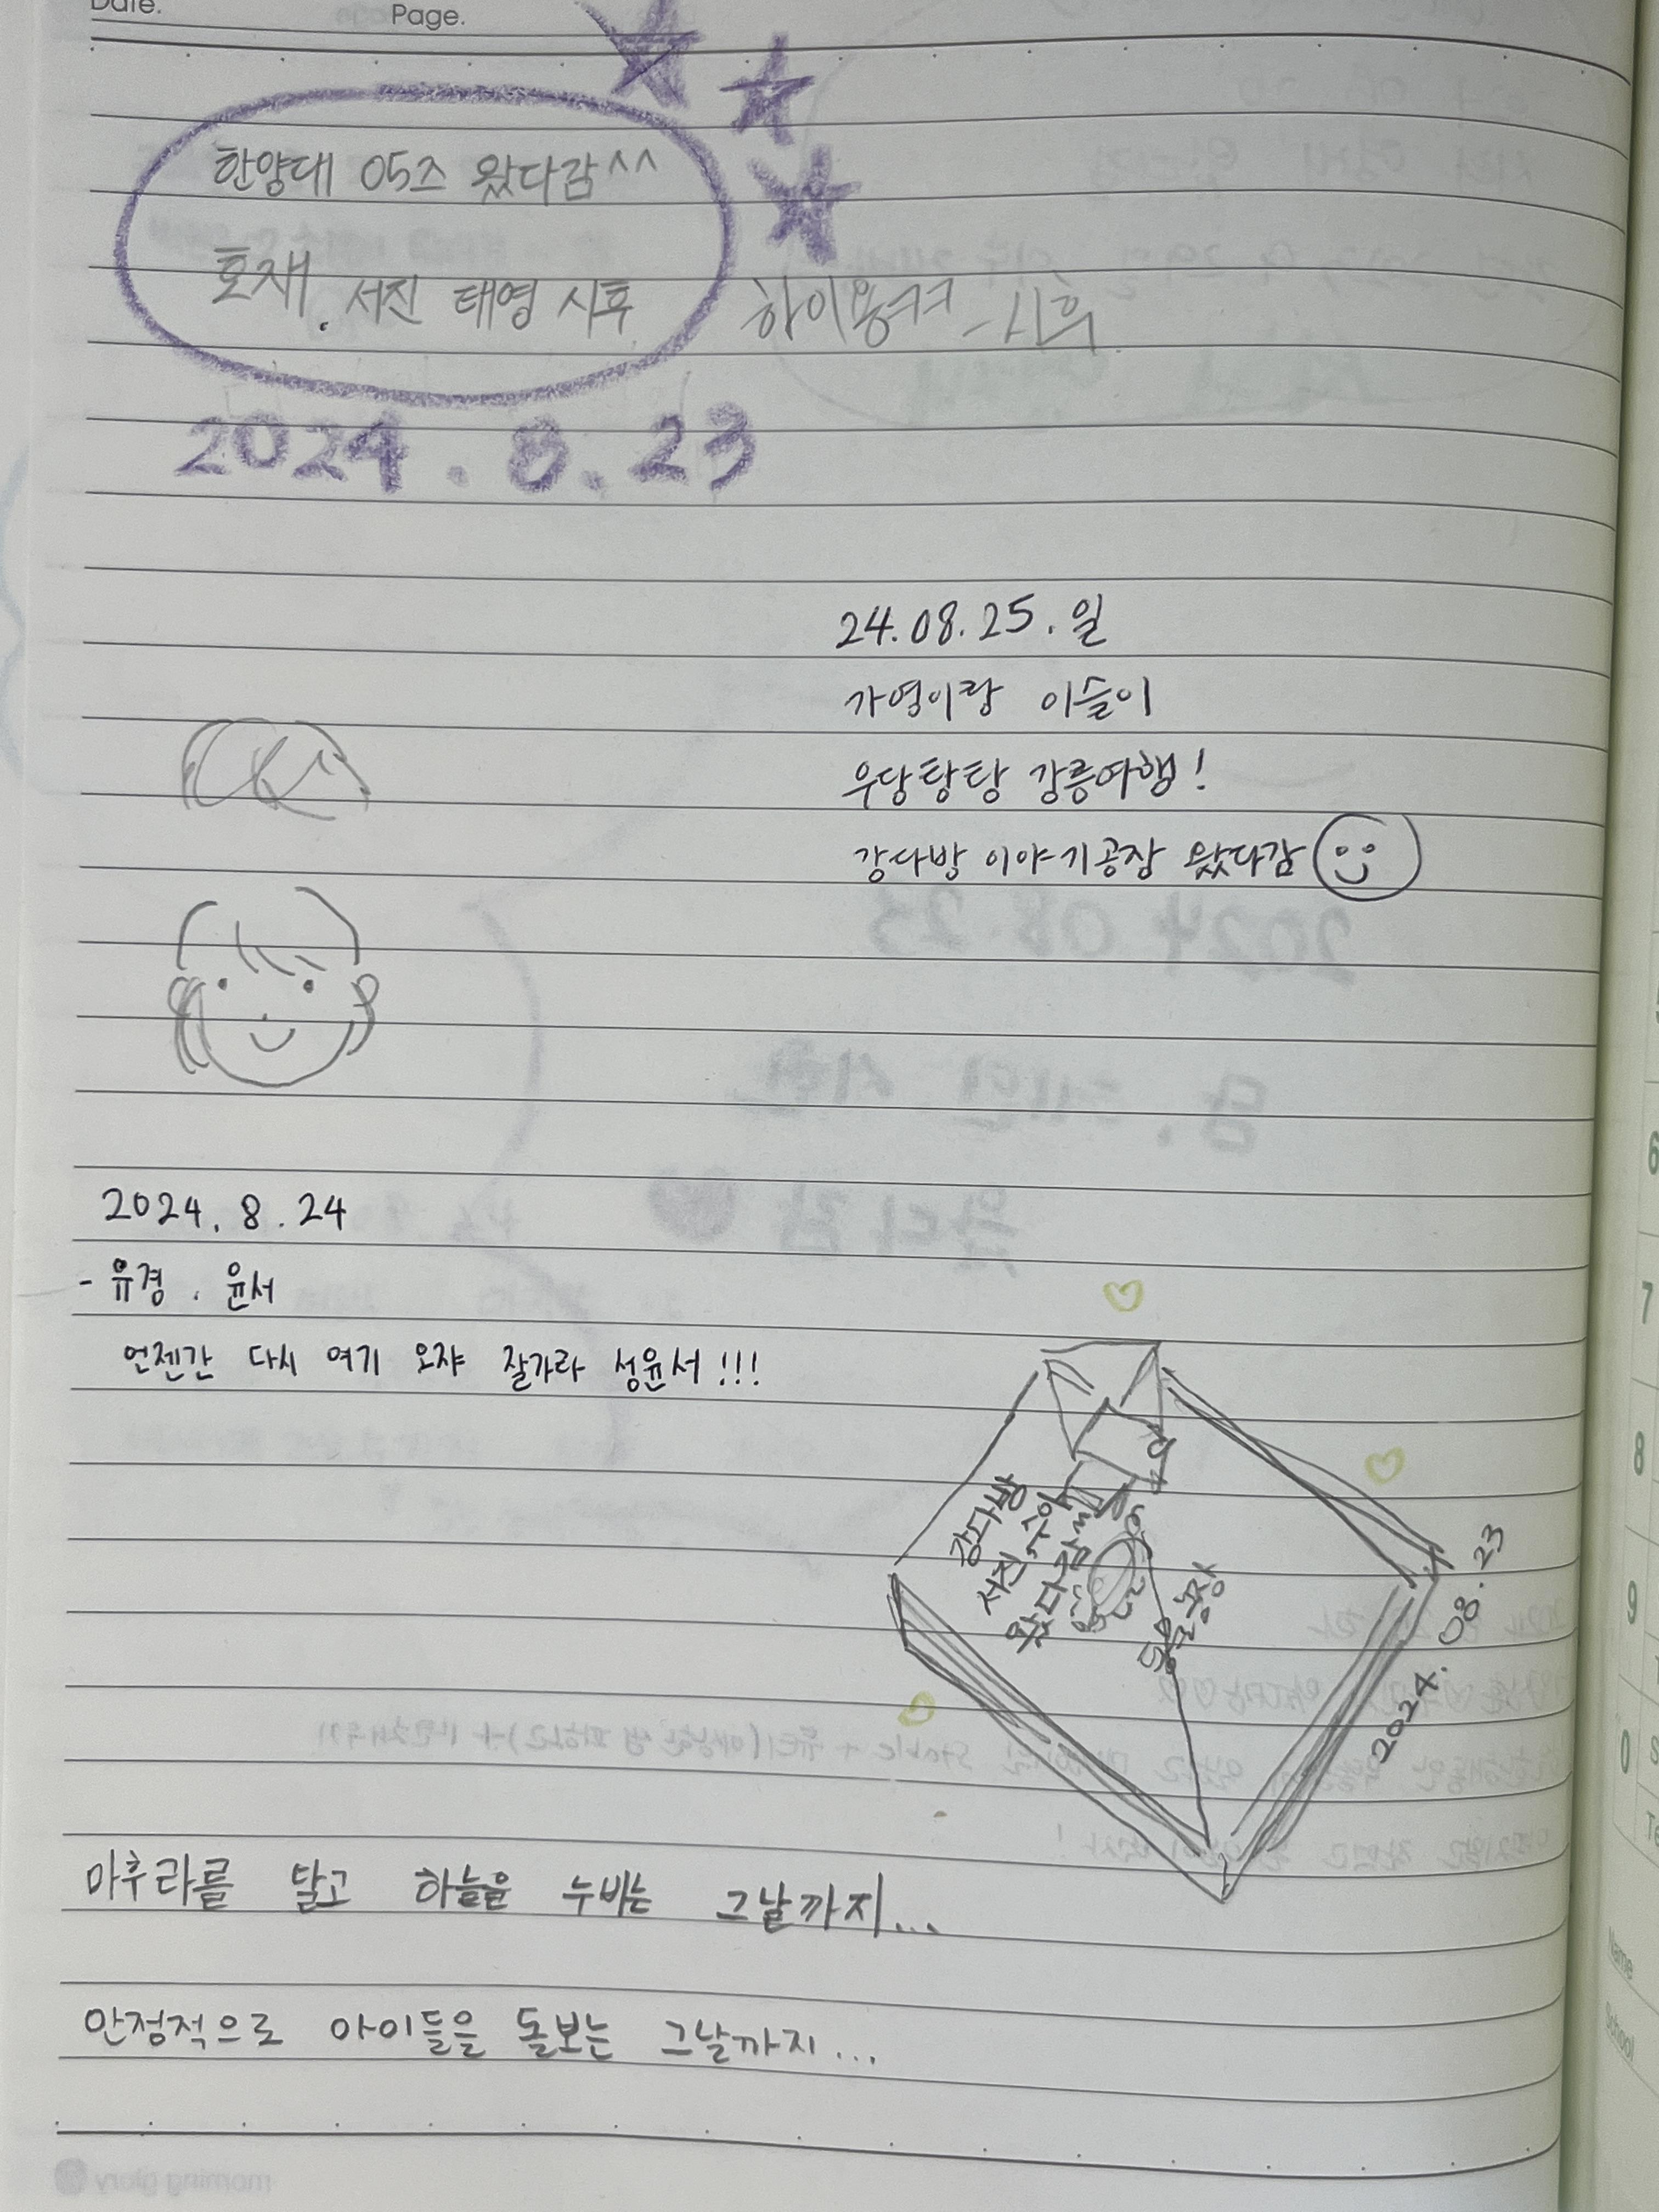 Date.
Page.
한양대 05즈 왔다감^^
호재. 서진 태영 시후
하이용ㅋㅋ - 시후
2024.8.23
24.08.25.일
가영이랑 이슬이
우당탕탕 강릉여행!
강다방 이야기공장 왔다감
2024.8.24
- 유경. 윤서
언젠간 다시 여기 오쟈 잘가라 성윤서!!!
강다방
서진 수아
왔다감
2024.08.23
마후라를 달고 하늘을 누비는 그날까지...
안정적으로 아이들을 돌보는 그날까지...
6
7
8
9
0
Name
School
morning glory